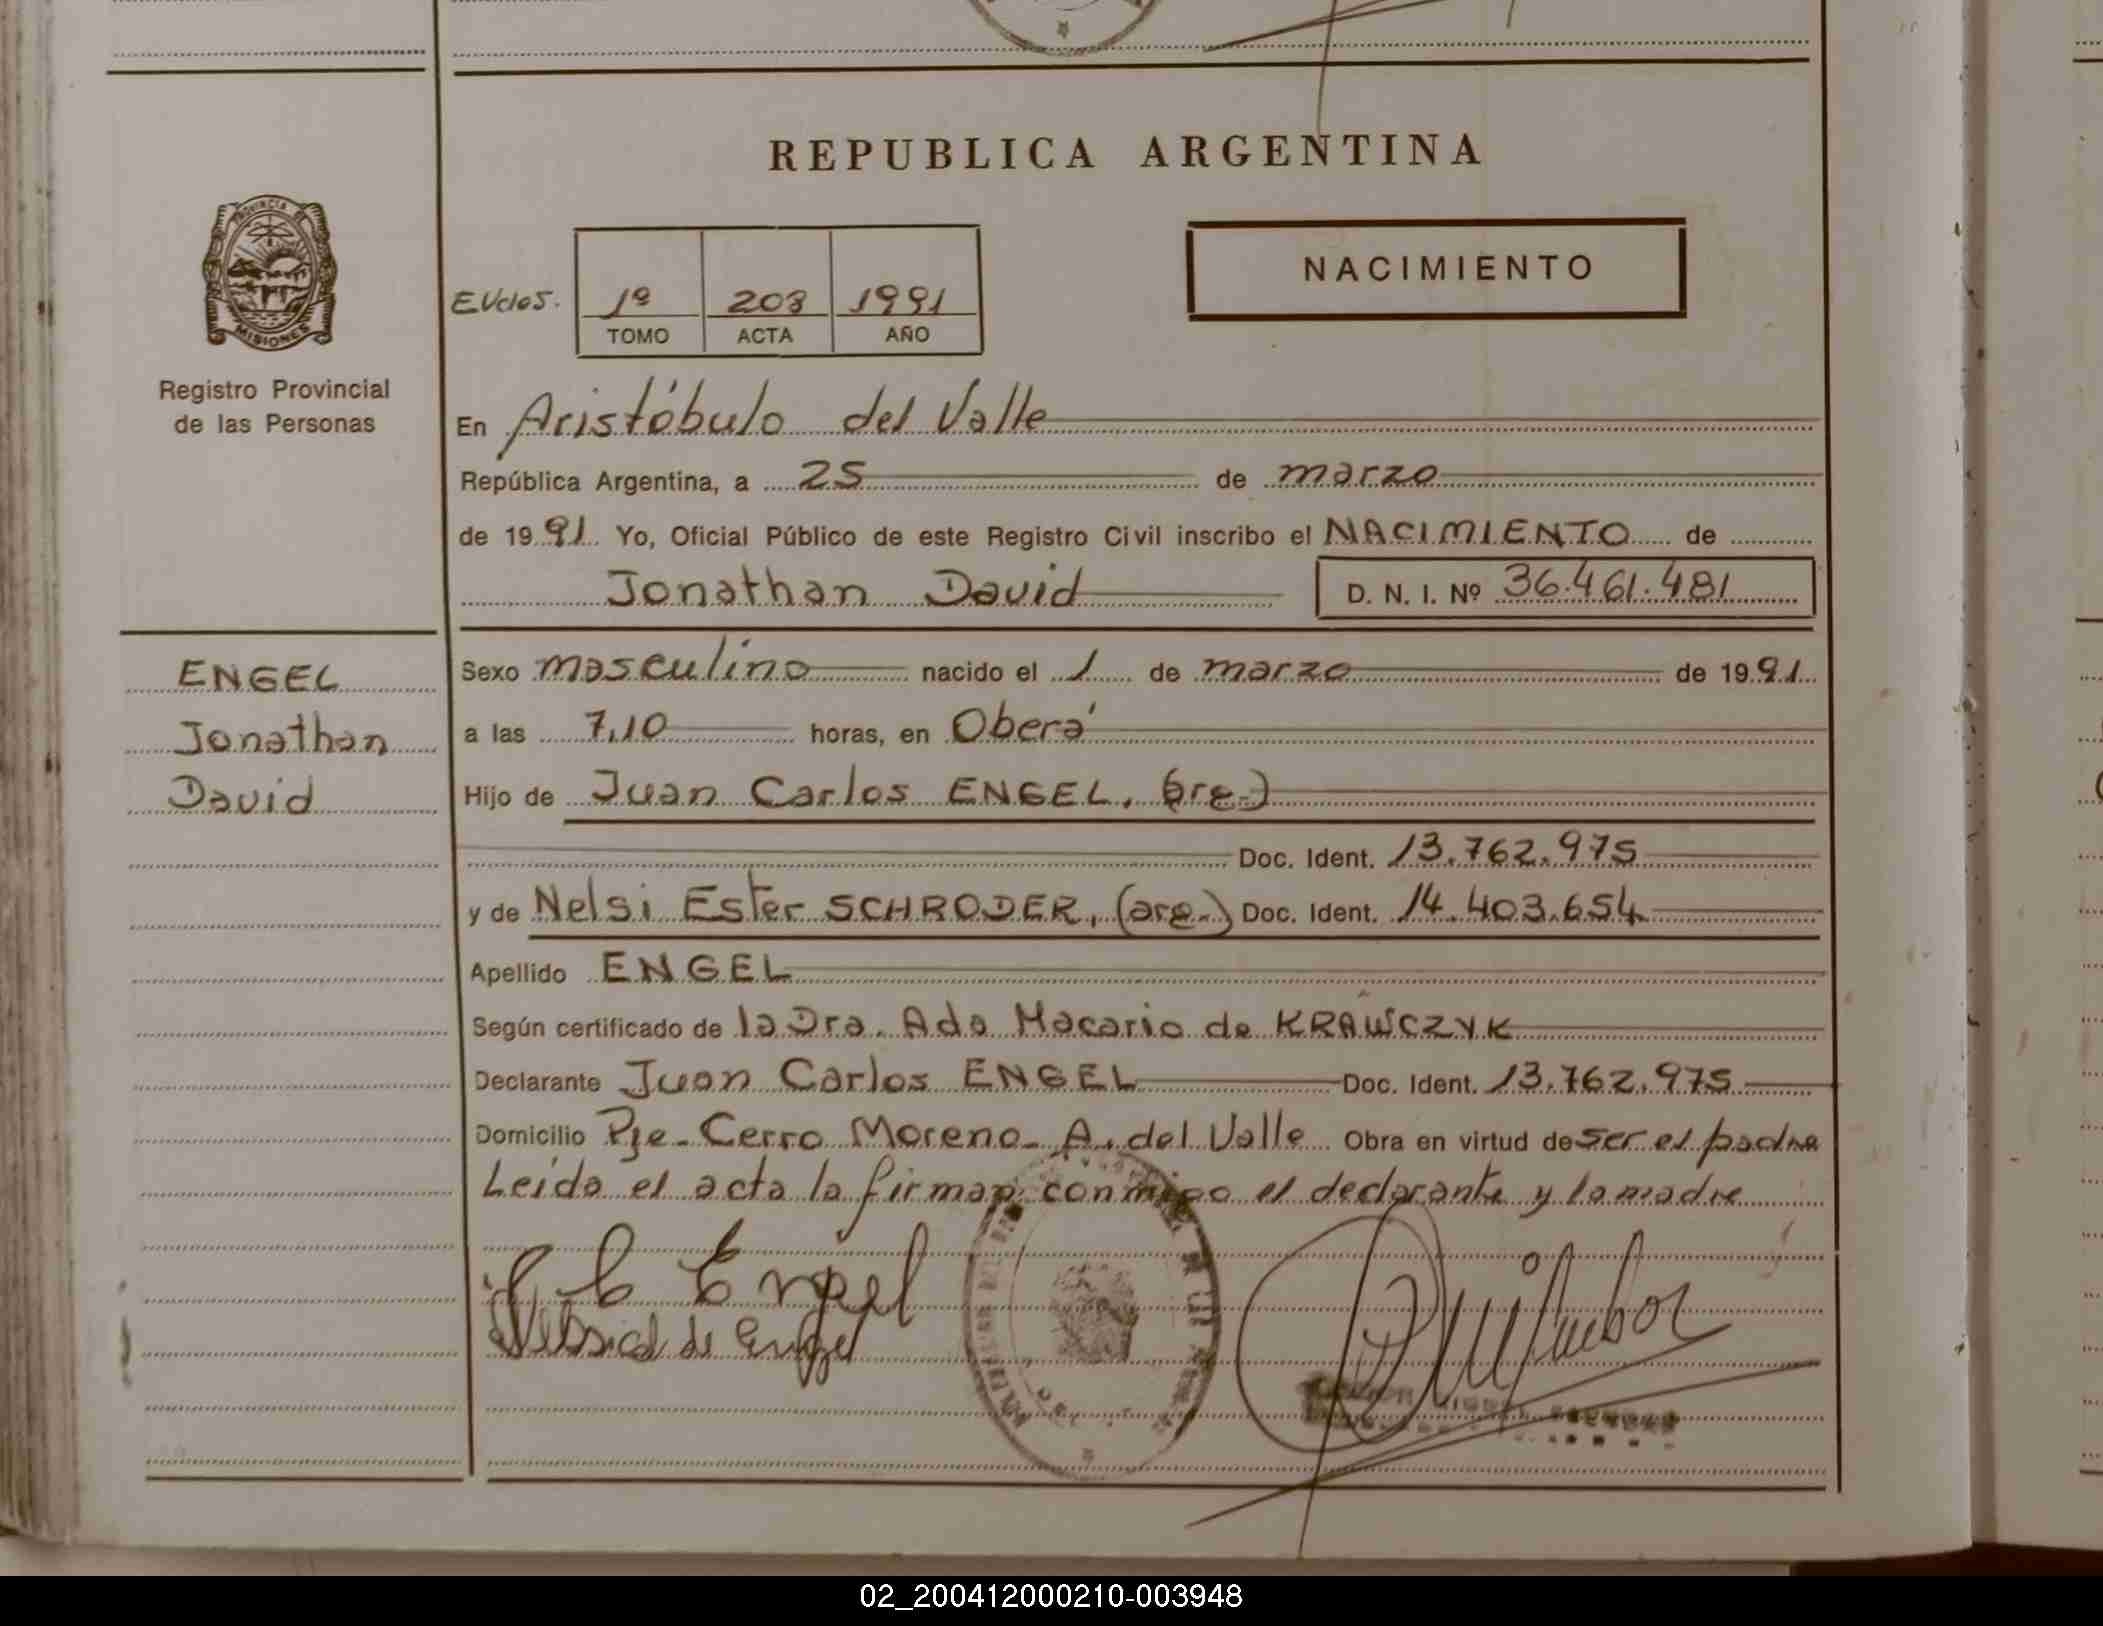 REPUBLICA ARGENTINA
PROVINCIA DE
MISIONES
Registro Provincial
de las Personas
NACIMIENTO
1º 203 1991
TOMO ACTA AÑO
En Aristóbulo del Valle
República Argentina, a 25 de marzo
de 1991 Yo, Oficial Público de este Registro Civil inscribo el NACIMIENTO de
Jonathan David D. N. I. Nº 36.461.481
ENGEL
Jonathan
David
Sexo masculino nacido el 1 de marzo de 1991
a las 7,10 horas, en Oberá
Hijo de Juan Carlos ENGEL, (arg.)
Doc. Ident. 13.762.975
y de Nelsi Ester SCHRODER, (arg.) Doc. Ident. 14.403.654
Apellido ENGEL
Según certificado de la Dra. Ada Macario de KRAWCZYK
Declarante Juan Carlos ENGEL Doc. Ident. 13.762.975
Domicilio Pje. Cerro Moreno - A. del Valle Obra en virtud de ser el padre
Leida el acta la firman conmigo el declarante y la madre
J C Engel
de Engel
02_200412000210-003948